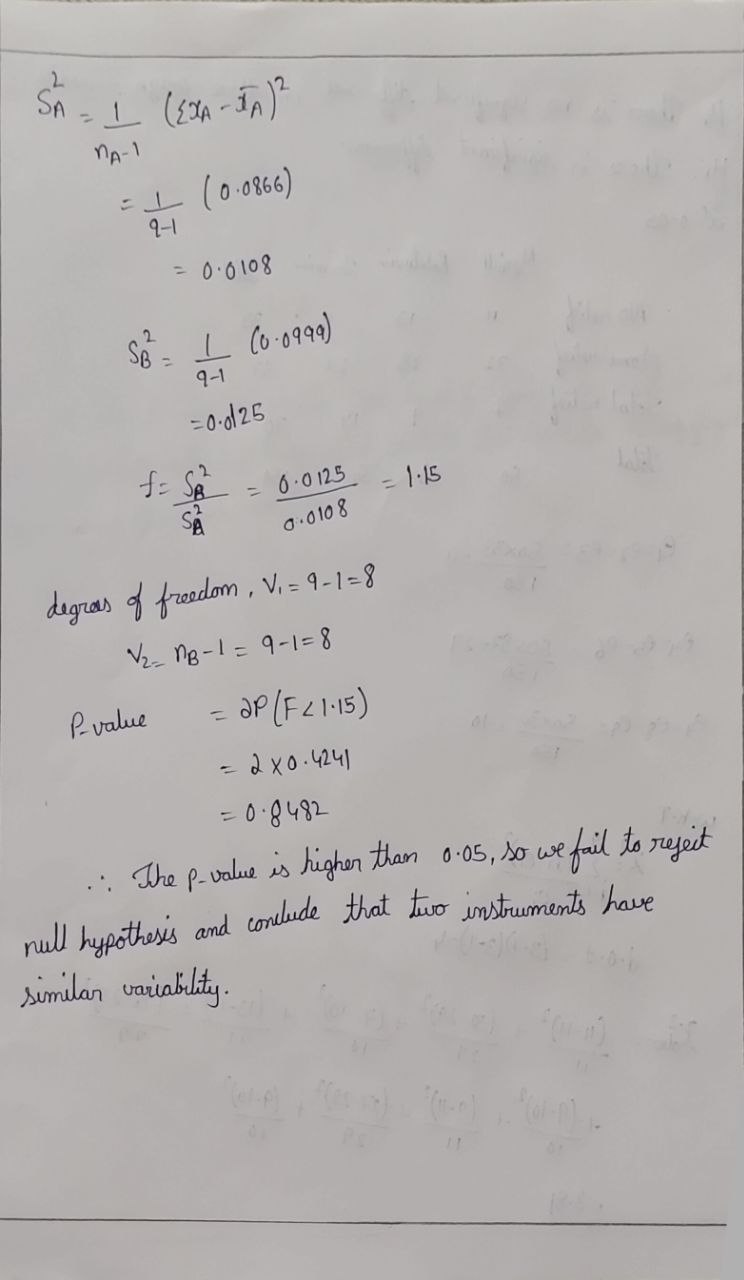 S_A^2 = 1/(n_A-1) (Σx_A - x̄_A)^2
= 1/(9-1) (0.0866)
= 0.0108
S_B^2 = 1/(9-1) (0.0999)
= 0.0125
f = S_B^2/S_A^2 = 0.0125/0.0108 = 1.15
degrees of freedom, V_1 = 9-1=8
V_2 = n_B-1 = 9-1=8
P-value = 2P(F<1.15)
= 2 x 0.4241
= 0.8482
∴ The p-value is higher than 0.05, so we fail to reject
null hypothesis and conclude that two instruments have
similar variability.